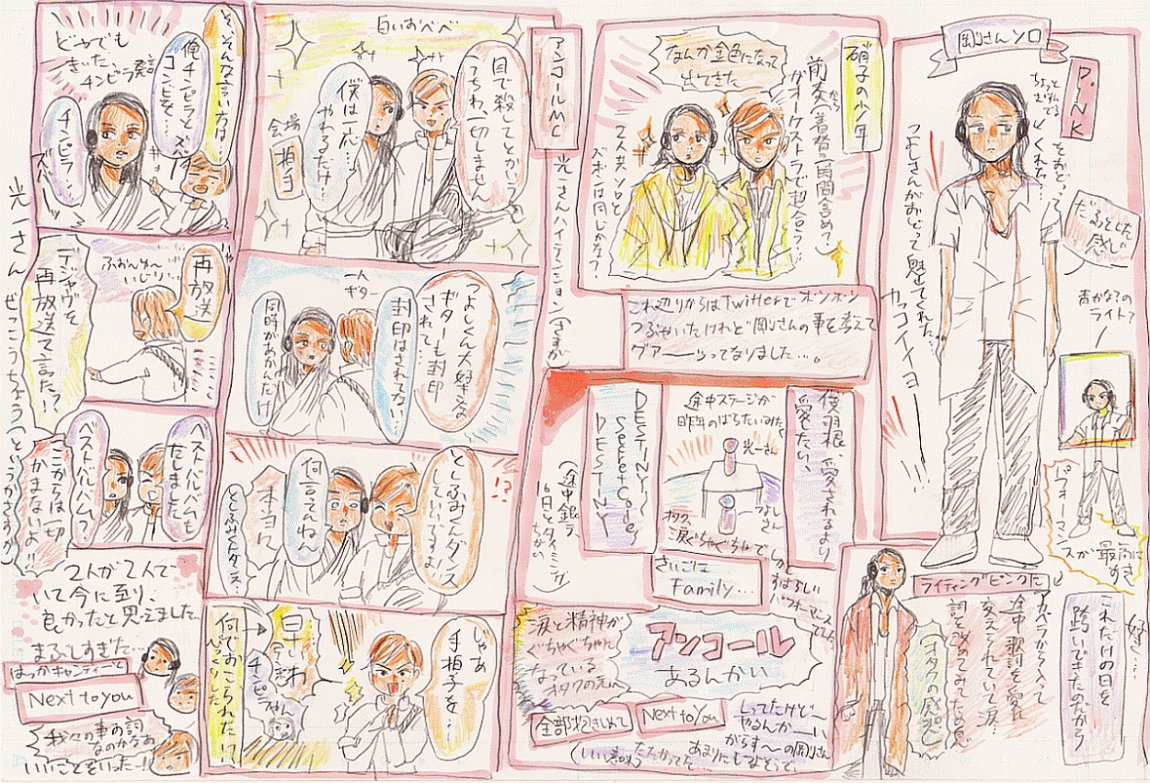 岡さんソロ
P.NK
ちょっと
とんでる
くれた…
とおどって
つよしさんがおどって魅せてくれた…
カッコイイヨー
だるっとした
感じ
青かなでの
ライト?
パフォーマンスが最高にめき
好き…
これだけの日を
跨いできたのだから
ライティングピンクだ
アカペラから入って
途中歌詞を愛に
変えられていて涙…
詞を改めてみてため息
(オタクの感想)
硝子の少年
なんか金色になって
出てきた
前奏から(着替の時間含め?)
がオーケストラで超合う…
2人共ソロと
ズボンは同じかな?
これ辺りからはTwitterでポツポツ
つぶやいたけれど岡さんの事を考えて
グアーーッってなりました…。
僕羽根、愛されるより
愛したい、
途中ステージが
昨年のばらたいみたく
光一さん
つよしさん
オタク
涙ぐちゃぐちゃで
しかし
すばらしい
パフォーマンスでした
DESTINY/
Secret Code/
DESTINY
(途中銀テ
16日とタイミング
ちがい)
さいごは
Family…
アンコール
あるんかい
涙と精神が
ぐちゃぐちゃに
なっている
オタクの元に
全部抱きしめて
Next to You
しってたけどー
やるんかーい
からす〜の岡さん
あまりにもびようで
たたかってた…
(いい意味)
アンコールMC
光一さんハイテンション(さまが
白いおべべ
目で殺してとかいう
うちわ、一切しません
僕は一応…
やれるだけ…
会場
拍手
つよしくん大好きな
ギターも封印
されて…
封印はされてない…
同時があかんだけ
一人
ギター
としふみくんダンス
していいですよ
何言うてんねん
ホンマに
としふみくんダンス…
!?
じゃあ
手拍子を…
早よ
チンピラやん
何でおこられたい!?
びっくりした
そ、そんな言い方は…
俺チンピラと
コンビを…
チンピラ…
ズバー
どうでも
きいた、
チンピラ発言
光一さん
ぜっこうちょう(というかさすが
再放送
ふぉんゆ〜
いじり…
デジャヴを
再放送て言たう!!
ベストバルバムも
だしました
ベストバルバム?
ここからは一切
かまないよ!!
2人が2人で
いて今に至り、
良かったと思えました
まぶしすぎた…
はっかキャンディーで
Next to you
我々の事の詞
なのかなあ
いいことをいったー!!